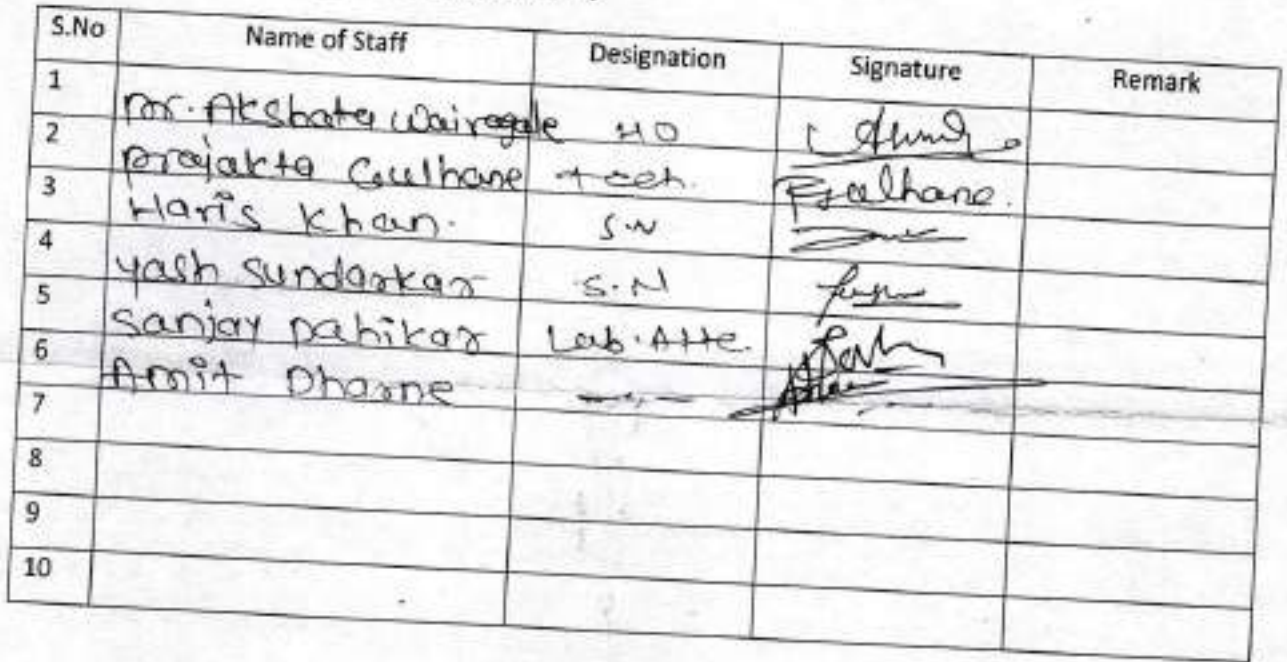 S.No Name of Staff Designation Signature Remark
1 Dr. Akshata Wairagale MO
2 Prajakta Gulhane Tech. PGulhane.
3 Haris Khan. S.N
4 Yash Sundarkar S.N
5 Sanjay Dahikar Lab. Atte.
6 Amit Dharne —〃—
7
8
9
10